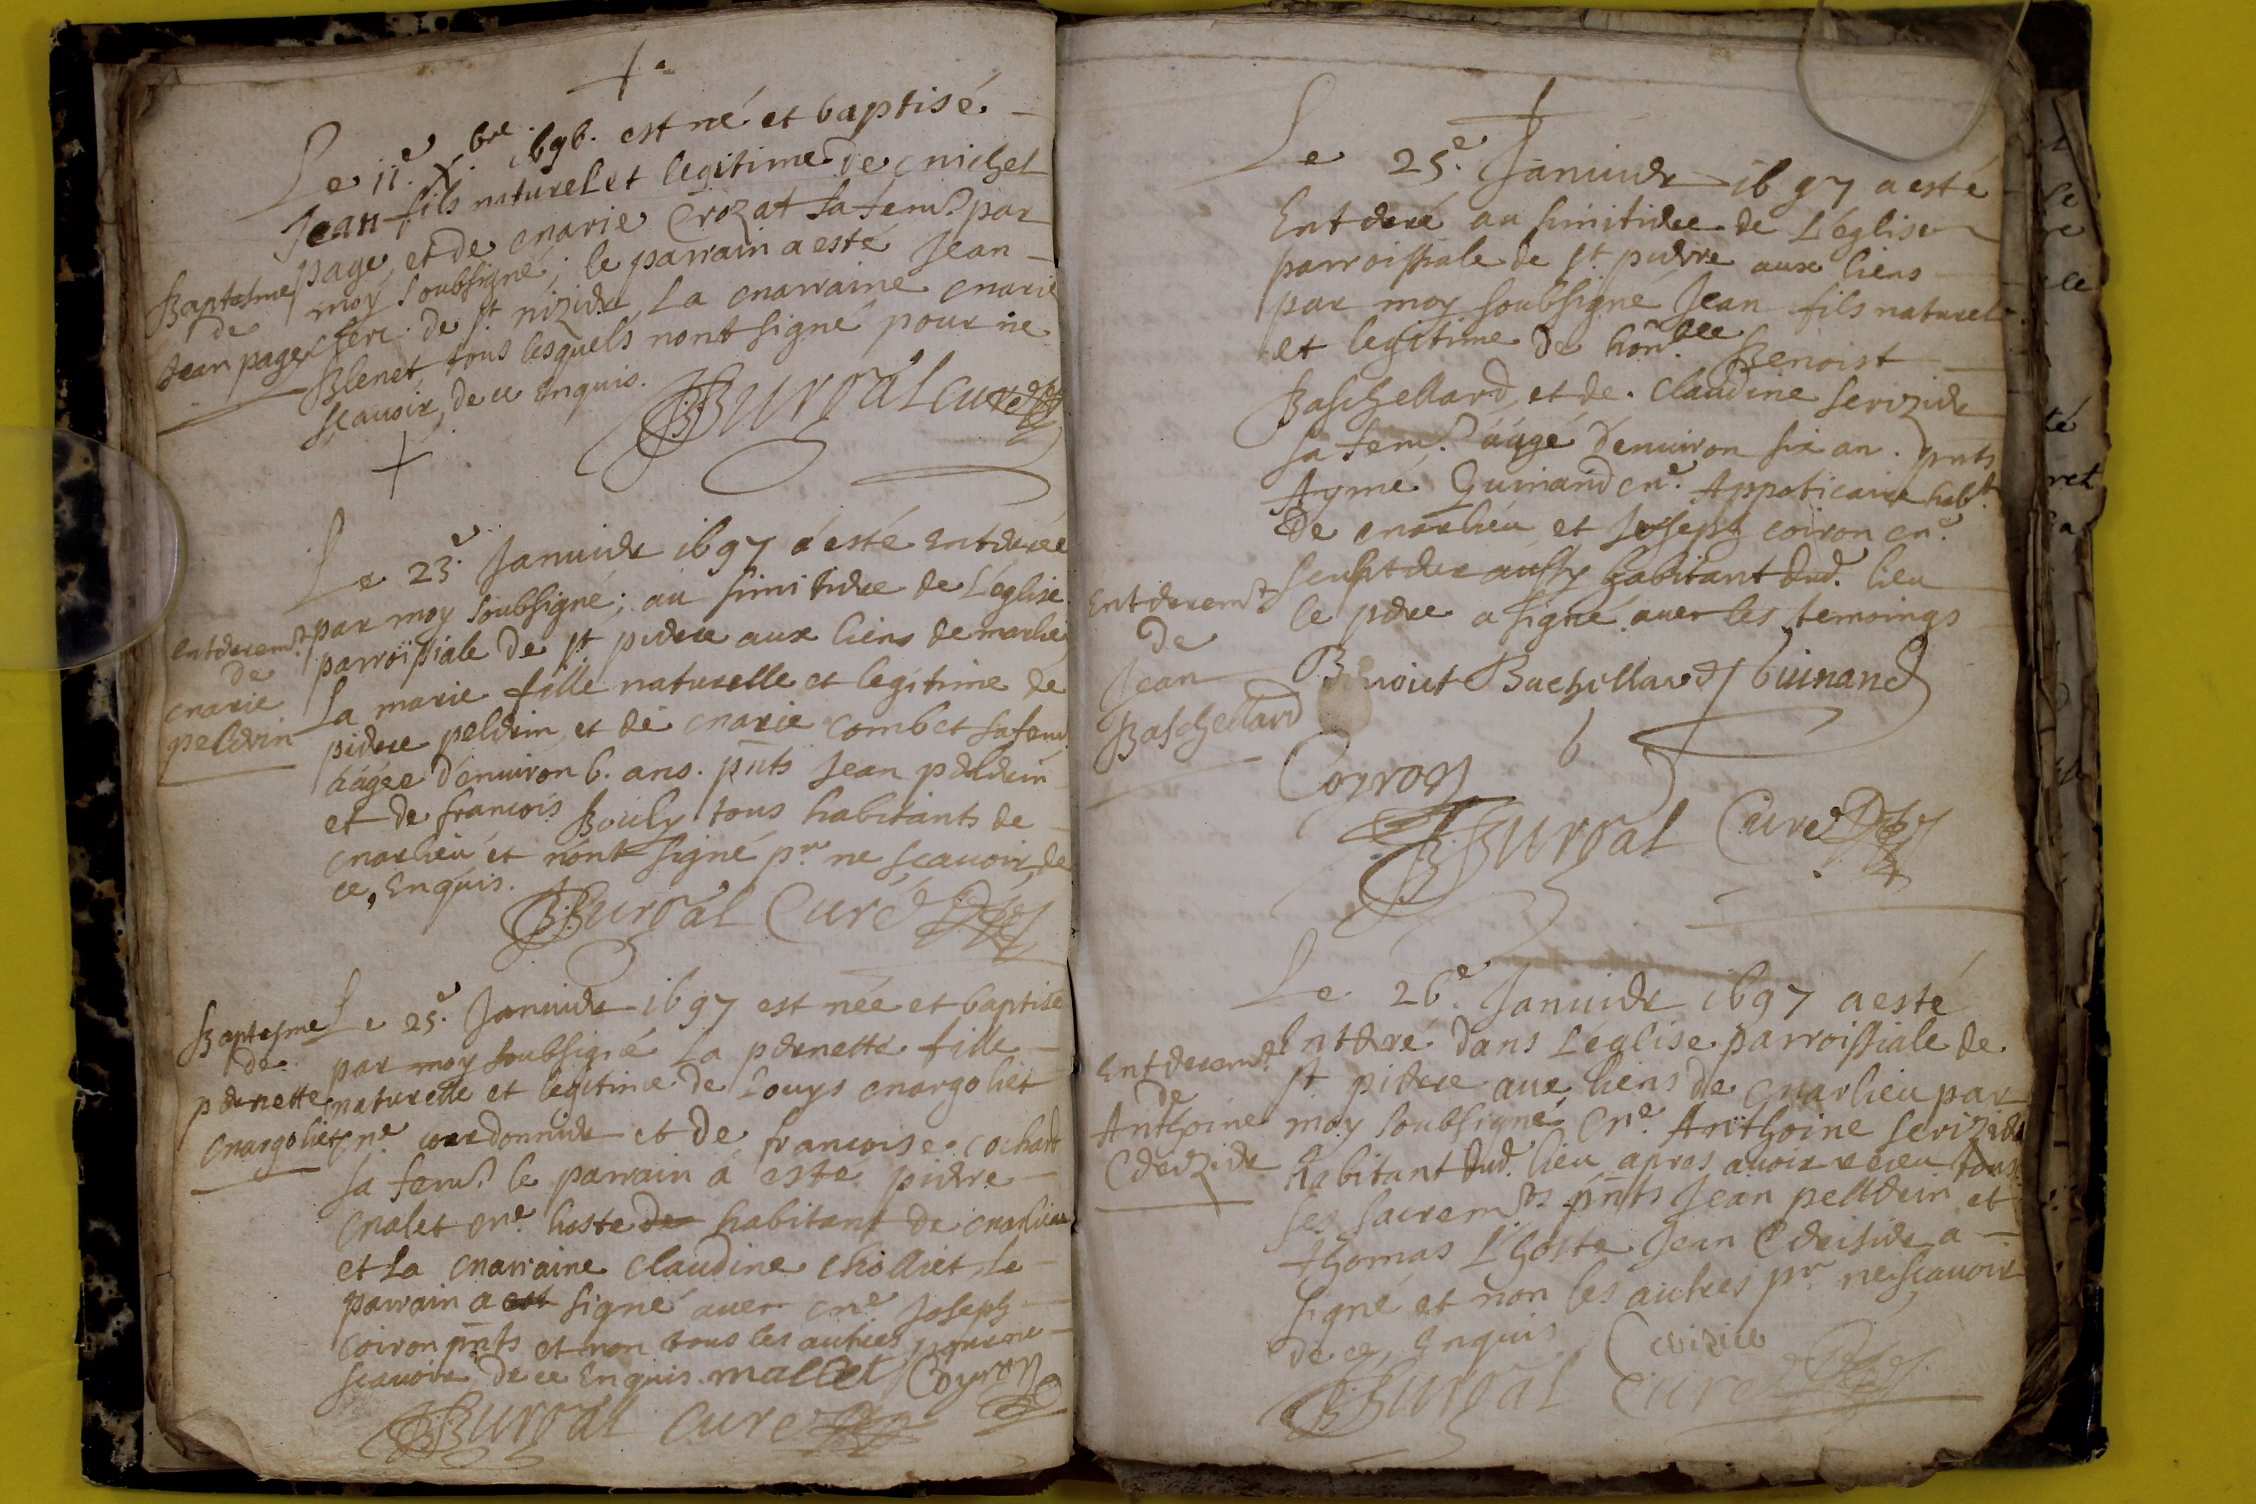 Le 11e. Xbre. 1696. est né et baptisé.
Jean fils naturel et legitime de michel
page, et de marie Crozat sa feme. par
moy soubsigné; le parrain a esté Jean
clerc. de st. nizier La marraine marie
Blenet, tous lesquels nont signé pour ne
scavoir, de ce Enquis.
Baptesme
de
Jean page
BBurgat curé
Le 23e. Januier 1697 á esté Enterée
par moy soubsigné; au simitiere de L'eglise
parroissiale de st pierre aux liens de marlieu
La marie fille naturelle et legitime de
pierre pelerin, et de marie combet sa feme
áágée d'enuiron 6. ans. pnts Jean pelerin
et de francois Bouly tous habitants de
marlieu et n'ont signé pr. ne scauoir, de
ce, Enquis.
Enterremt.
de
marie
pelerin
BBurgat Curé
Le 25e. Januier 1697 est née et baptisé
par moy soubsigné La pernette fille
naturelle et legitime de Louys margoliet
me. cordonnier et de francoise. cochard
sa feme. le parrain á esté pierre
malet me. hoste habitant de marlieu
et La marraine claudine cholliet, Le
parrain a signé auec me Joseph
coiron pnts et non tous les autres pour ne
scauoir de ce Enquis. mallet Coyron
Baptesme
de
pernette
margoliet
BBurgat curé
Le 25e. Januier 1697 a esté
Enterré au simitiere de L'église
parroissiale de st. pierre aux liens
par moy soubsigné Jean fils naturel
et legitime de honble Benoist
Baschellard, et de. claudine serizier
sa feme. áágé d'enuiron six an. pnts
Aymé Guinand me. Appoticaire habt.
de marlieu, et Joseph coiron me.
sculpteur aussy habitant dud. lieu
le pere a signé auec les temoings
Enterremt.
de
Jean
Baschellard
Benoict Bachellard Guinand
Coyron
BBurgat Curé
Le 26e. Januier 1697 a esté
Enterré dans L'église parroissiale de
st pierre aux liens de marlieu par
moy soubsigné, me. Anthoine serizier
habitant dud. lieu apres auoir receu tous
ses sacremts. pnts Jean pellerin et
thomas L'hoste Jean Cerisier a
signé et non les autres pr. ne scauoir
de ce, Enquis
Enterremt.
de
Anthoine
Cerizier
BBurgat Curé